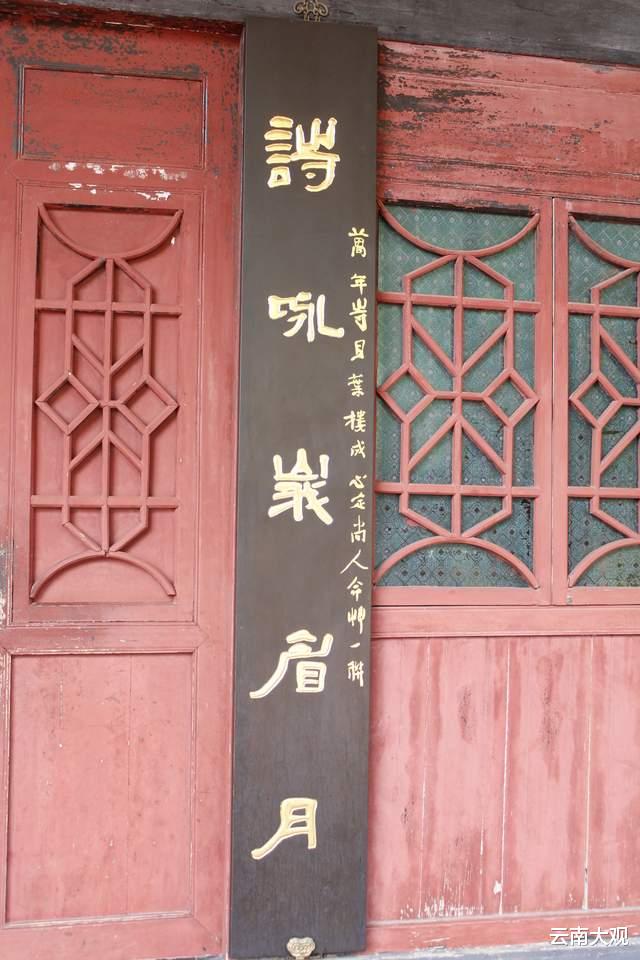 詩咏峩眉月
萬年寺貝葉樓成心定尚人命艸一聯
云南大观